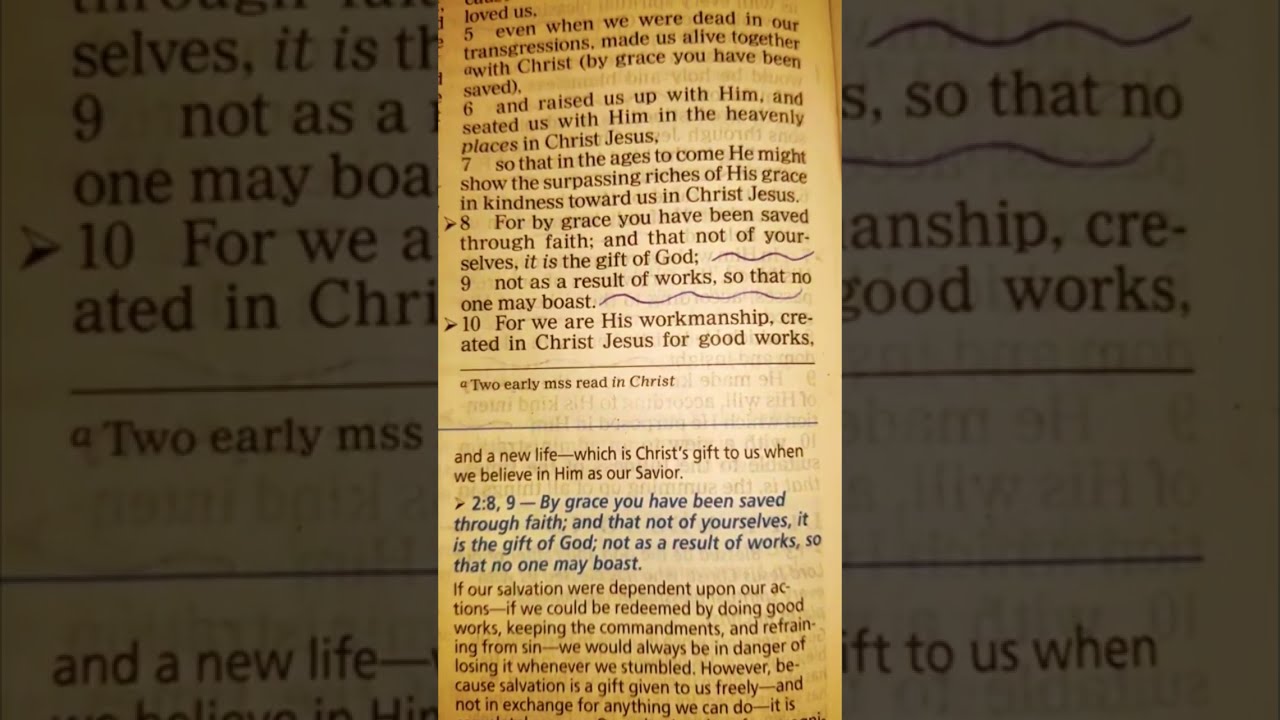 loved us,
5 even when we were dead in our
transgressions, made us alive together
a with Christ (by grace you have been
saved),
6 and raised us up with Him, and
seated us with Him in the heavenly
places in Christ Jesus,
7 so that in the ages to come He might
show the surpassing riches of His grace
in kindness toward us in Christ Jesus.
➢8 For by grace you have been saved
through faith; and that not of your-
selves, it is the gift of God;
9 not as a result of works, so that no
one may boast.
➢10 For we are His workmanship, cre-
ated in Christ Jesus for good works,
a Two early mss read in Christ
and a new life—which is Christ's gift to us when
we believe in Him as our Savior.
➢ 2:8, 9 — By grace you have been saved
through faith; and that not of yourselves, it
is the gift of God; not as a result of works, so
that no one may boast.
If our salvation were dependent upon our ac-
tions—if we could be redeemed by doing good
works, keeping the commandments, and refrain-
ing from sin—we would always be in danger of
losing it whenever we stumbled. However, be-
cause salvation is a gift given to us freely—and
not in exchange for anything we can do—it is
selves, it is th
9 not as a
one may boa
➢10 For we a
ated in Chri
a Two early mss
and a new life—
we believe in Him
s, so that no
anship, cre-
good works,
ft to us when